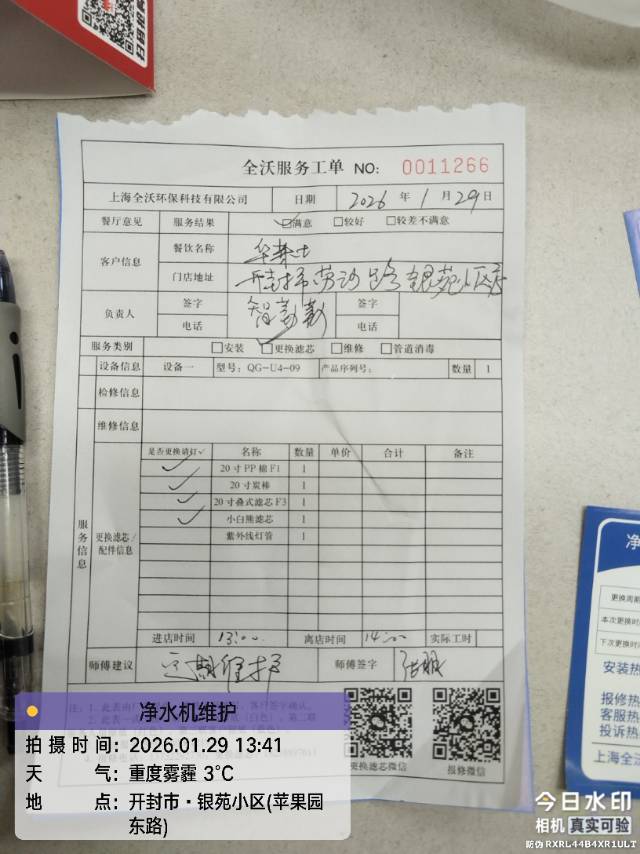 全沃服务工单 NO: 0011266
上海全沃环保科技有限公司 日期 2026 年 1 月 29 日
餐厅意见 服务结果 ☑满意 □较好 □较差不满意
客户信息 餐饮名称 华莱士
门店地址 开封市劳动路银苑小区店
负责人 签字 智勤勤 签字
电话 电话
服务类别 □安装 ☑更换滤芯 □维修 □管道消毒
设备信息 设备一 型号: QG-U4-09 产品序列号: 数量 1
检修信息
维修信息
服务信息
更换滤芯/配件信息
是否更换请打√ 名称 数量 单价 合计 备注
✓ 20寸PP棉F1 1
✓ 20寸炭棒 1
✓ 20寸叠式滤芯F3 1
✓ 小白熊滤芯 1
紫外线灯管 1
进店时间 13:00 离店时间 14:00 实际工时
师傅建议 定期维护 师傅签字
更换滤芯微信 报修微信
净水机维护
拍摄时间: 2026.01.29 13:41
天气: 重度雾霾 3℃
地点: 开封市·银苑小区(苹果园东路)
净
更换周期
本次更换时
下次更换时
安装热
报修热
客服热
投诉热
上海全
今日水印
相机 真实可验
防伪 RXRL44B4XR1ULT